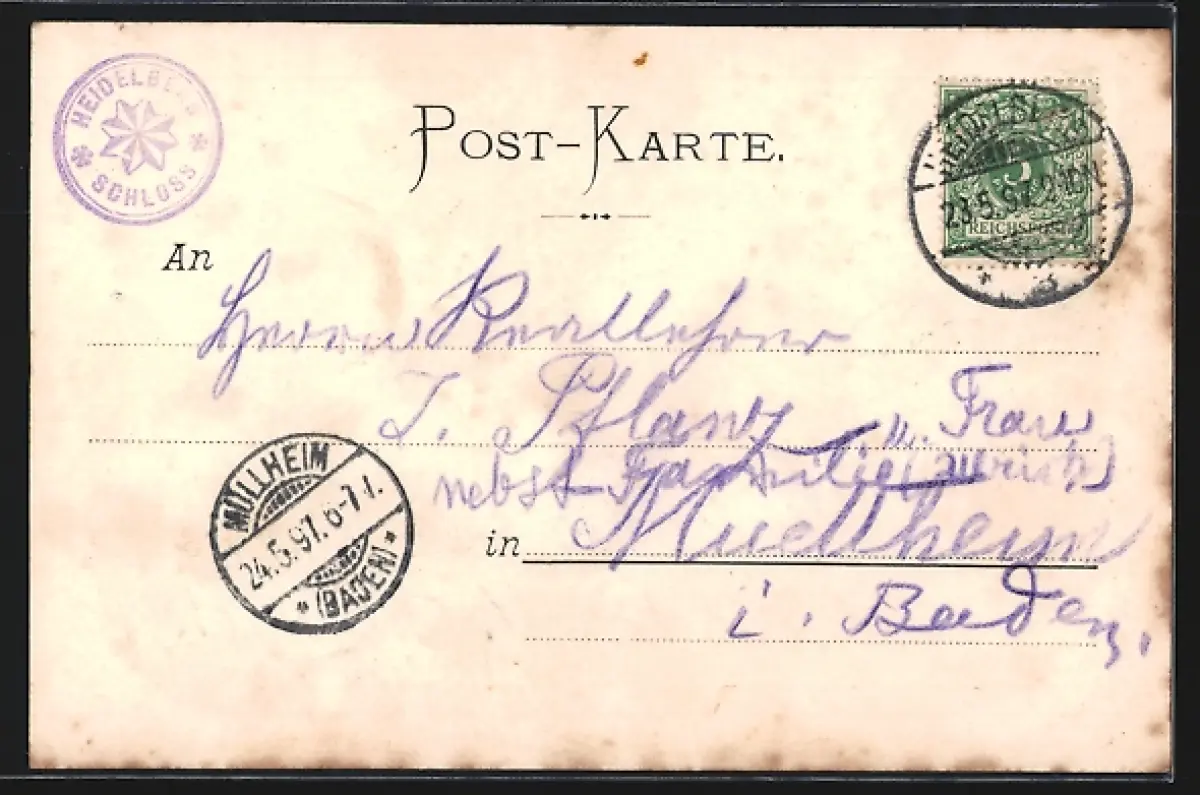 HEIDELBERG
SCHLOSS
POST-KARTE.
HEIDELBERG
23.5.97.
5
REICHSPOST
An
Herrn Reallehrer
J. Pflanz u. Frau
nebst Familie
in Muellheim
i. Baden.
MÜLLHEIM
24.5.97. 6-7
(BADEN)